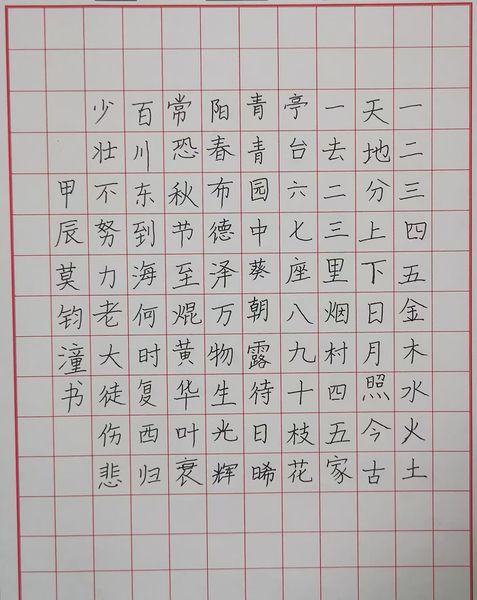 一二三四五金木水火土
天地分上下日月照今古
一去二三里烟村四五家
亭台六七座八九十枝花
青青园中葵朝露待日晞
阳春布德泽万物生光辉
常恐秋节至焜黄华叶衰
百川东到海何时复西归
少壮不努力老大徒伤悲
甲辰莫钧潼书